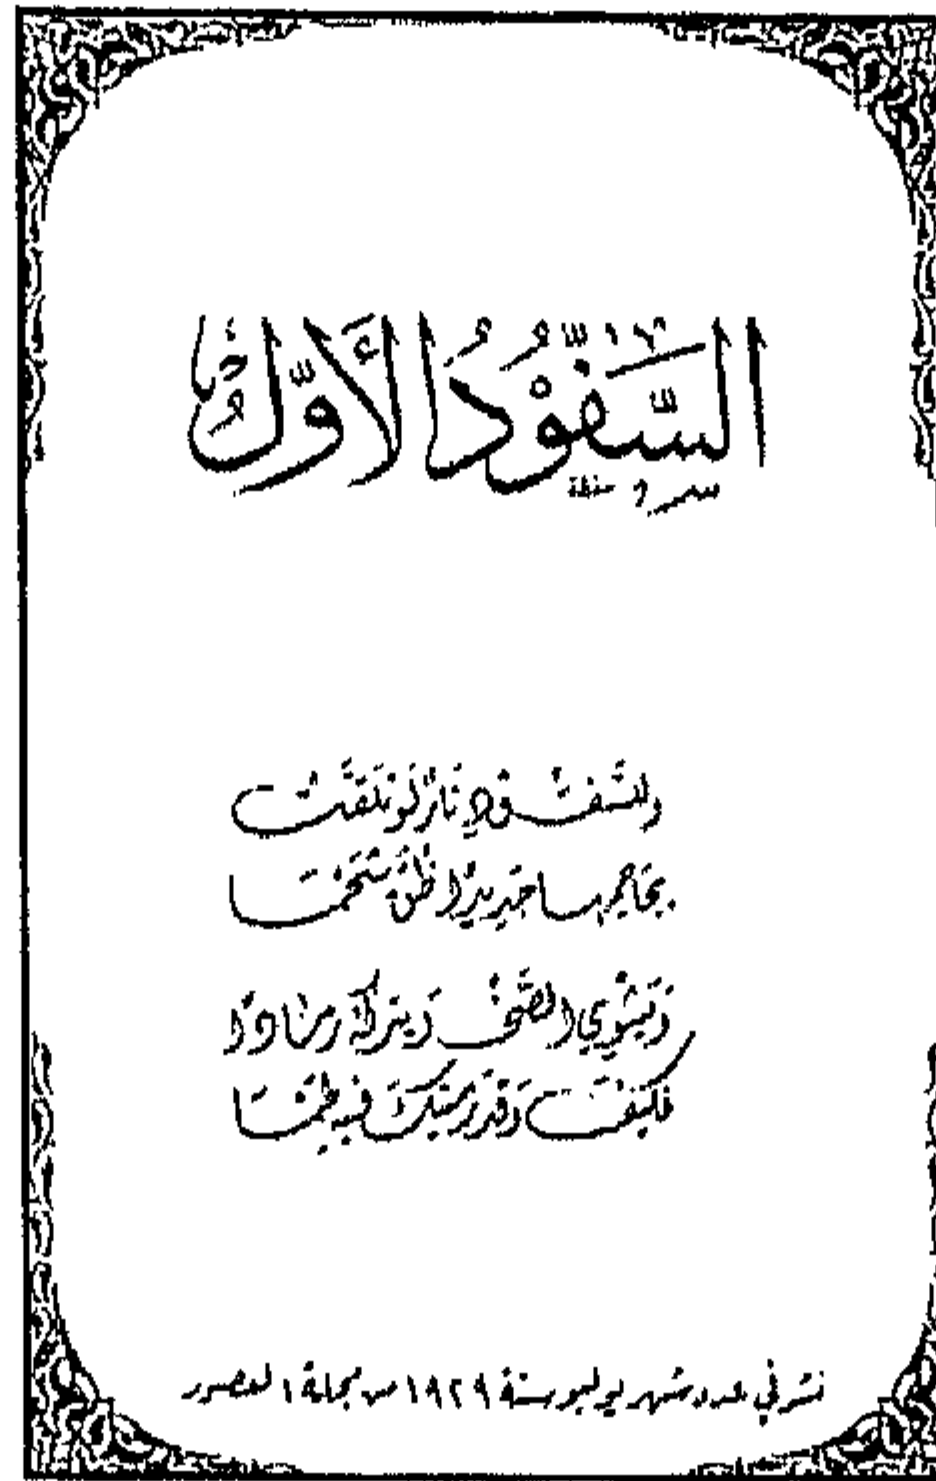 السَّفُّوْدُ الأَوَّلُ
وللسَّفُّودِ نَارٌ لَوْ تَلَقَّتْ
بجَاحِمِهَا حَدِيدًا ظُنَّ شَحْمَا
وَيَشْوِي الصَّخْرَ يَتْرُكُهُ رَمَادًا
فَكَيْفَ وَقَدْ رَمَيْتُكَ فِيهِ لَحْمَا
نشر في عدد شهر يوليو سنة ١٩٢٩ من مجلة العصور